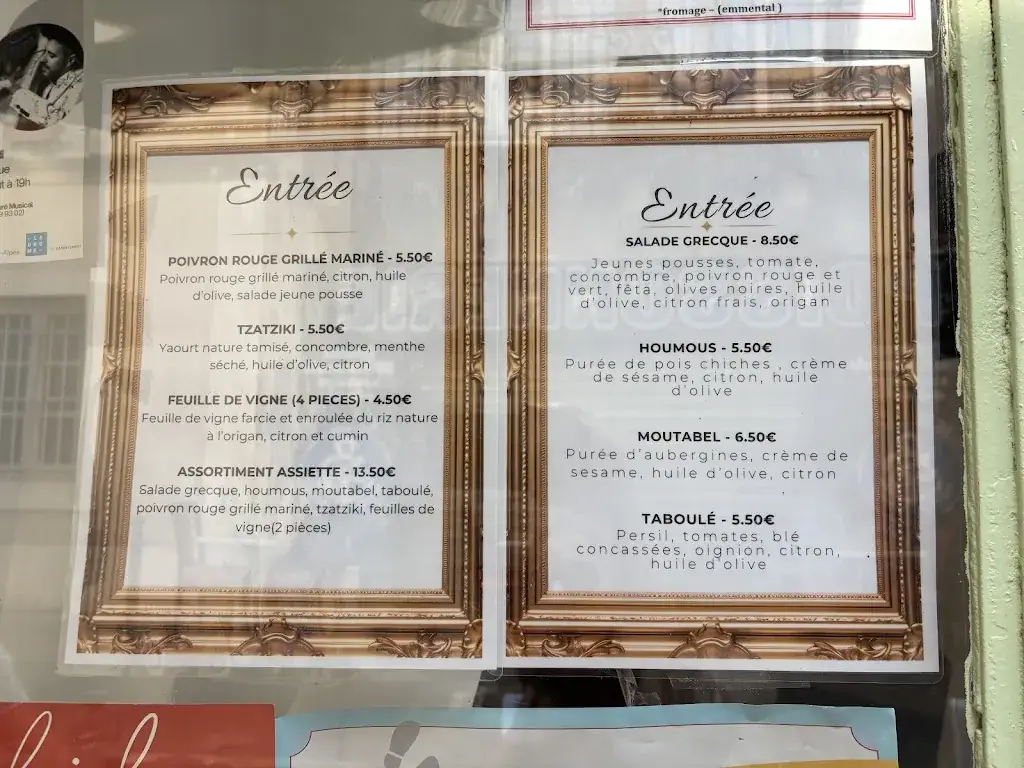 *fromage – (emmental )
ue
t à 19h
Musical
Entrée
POIVRON ROUGE GRILLÉ MARINÉ - 5.50€
Poivron rouge grillé mariné, citron, huile
d'olive, salade jeune pousse
TZATZIKI - 5.50€
Yaourt nature tamisé, concombre, menthe
séché, huile d'olive, citron
FEUILLE DE VIGNE (4 PIECES) - 4.50€
Feuille de vigne farcie et enroulée du riz nature
à l'origan, citron et cumin
ASSORTIMENT ASSIETTE - 13.50€
Salade grecque, houmous, moutabel, taboulé,
poivron rouge grillé mariné, tzatziki, feuilles de
vigne(2 pièces)
Entrée
SALADE GRECQUE - 8.50€
Jeunes pousses, tomate,
concombre, poivron rouge et
vert, fêta, olives noires, huile
d'olive, citron frais, origan
HOUMOUS - 5.50€
Purée de pois chiches , crème
de sésame, citron, huile
d'olive
MOUTABEL - 6.50€
Purée d'aubergines, crème de
sesame, huile d'olive, citron
TABOULÉ - 5.50€
Persil, tomates, blé
concassées, oignion, citron,
huile d'olive